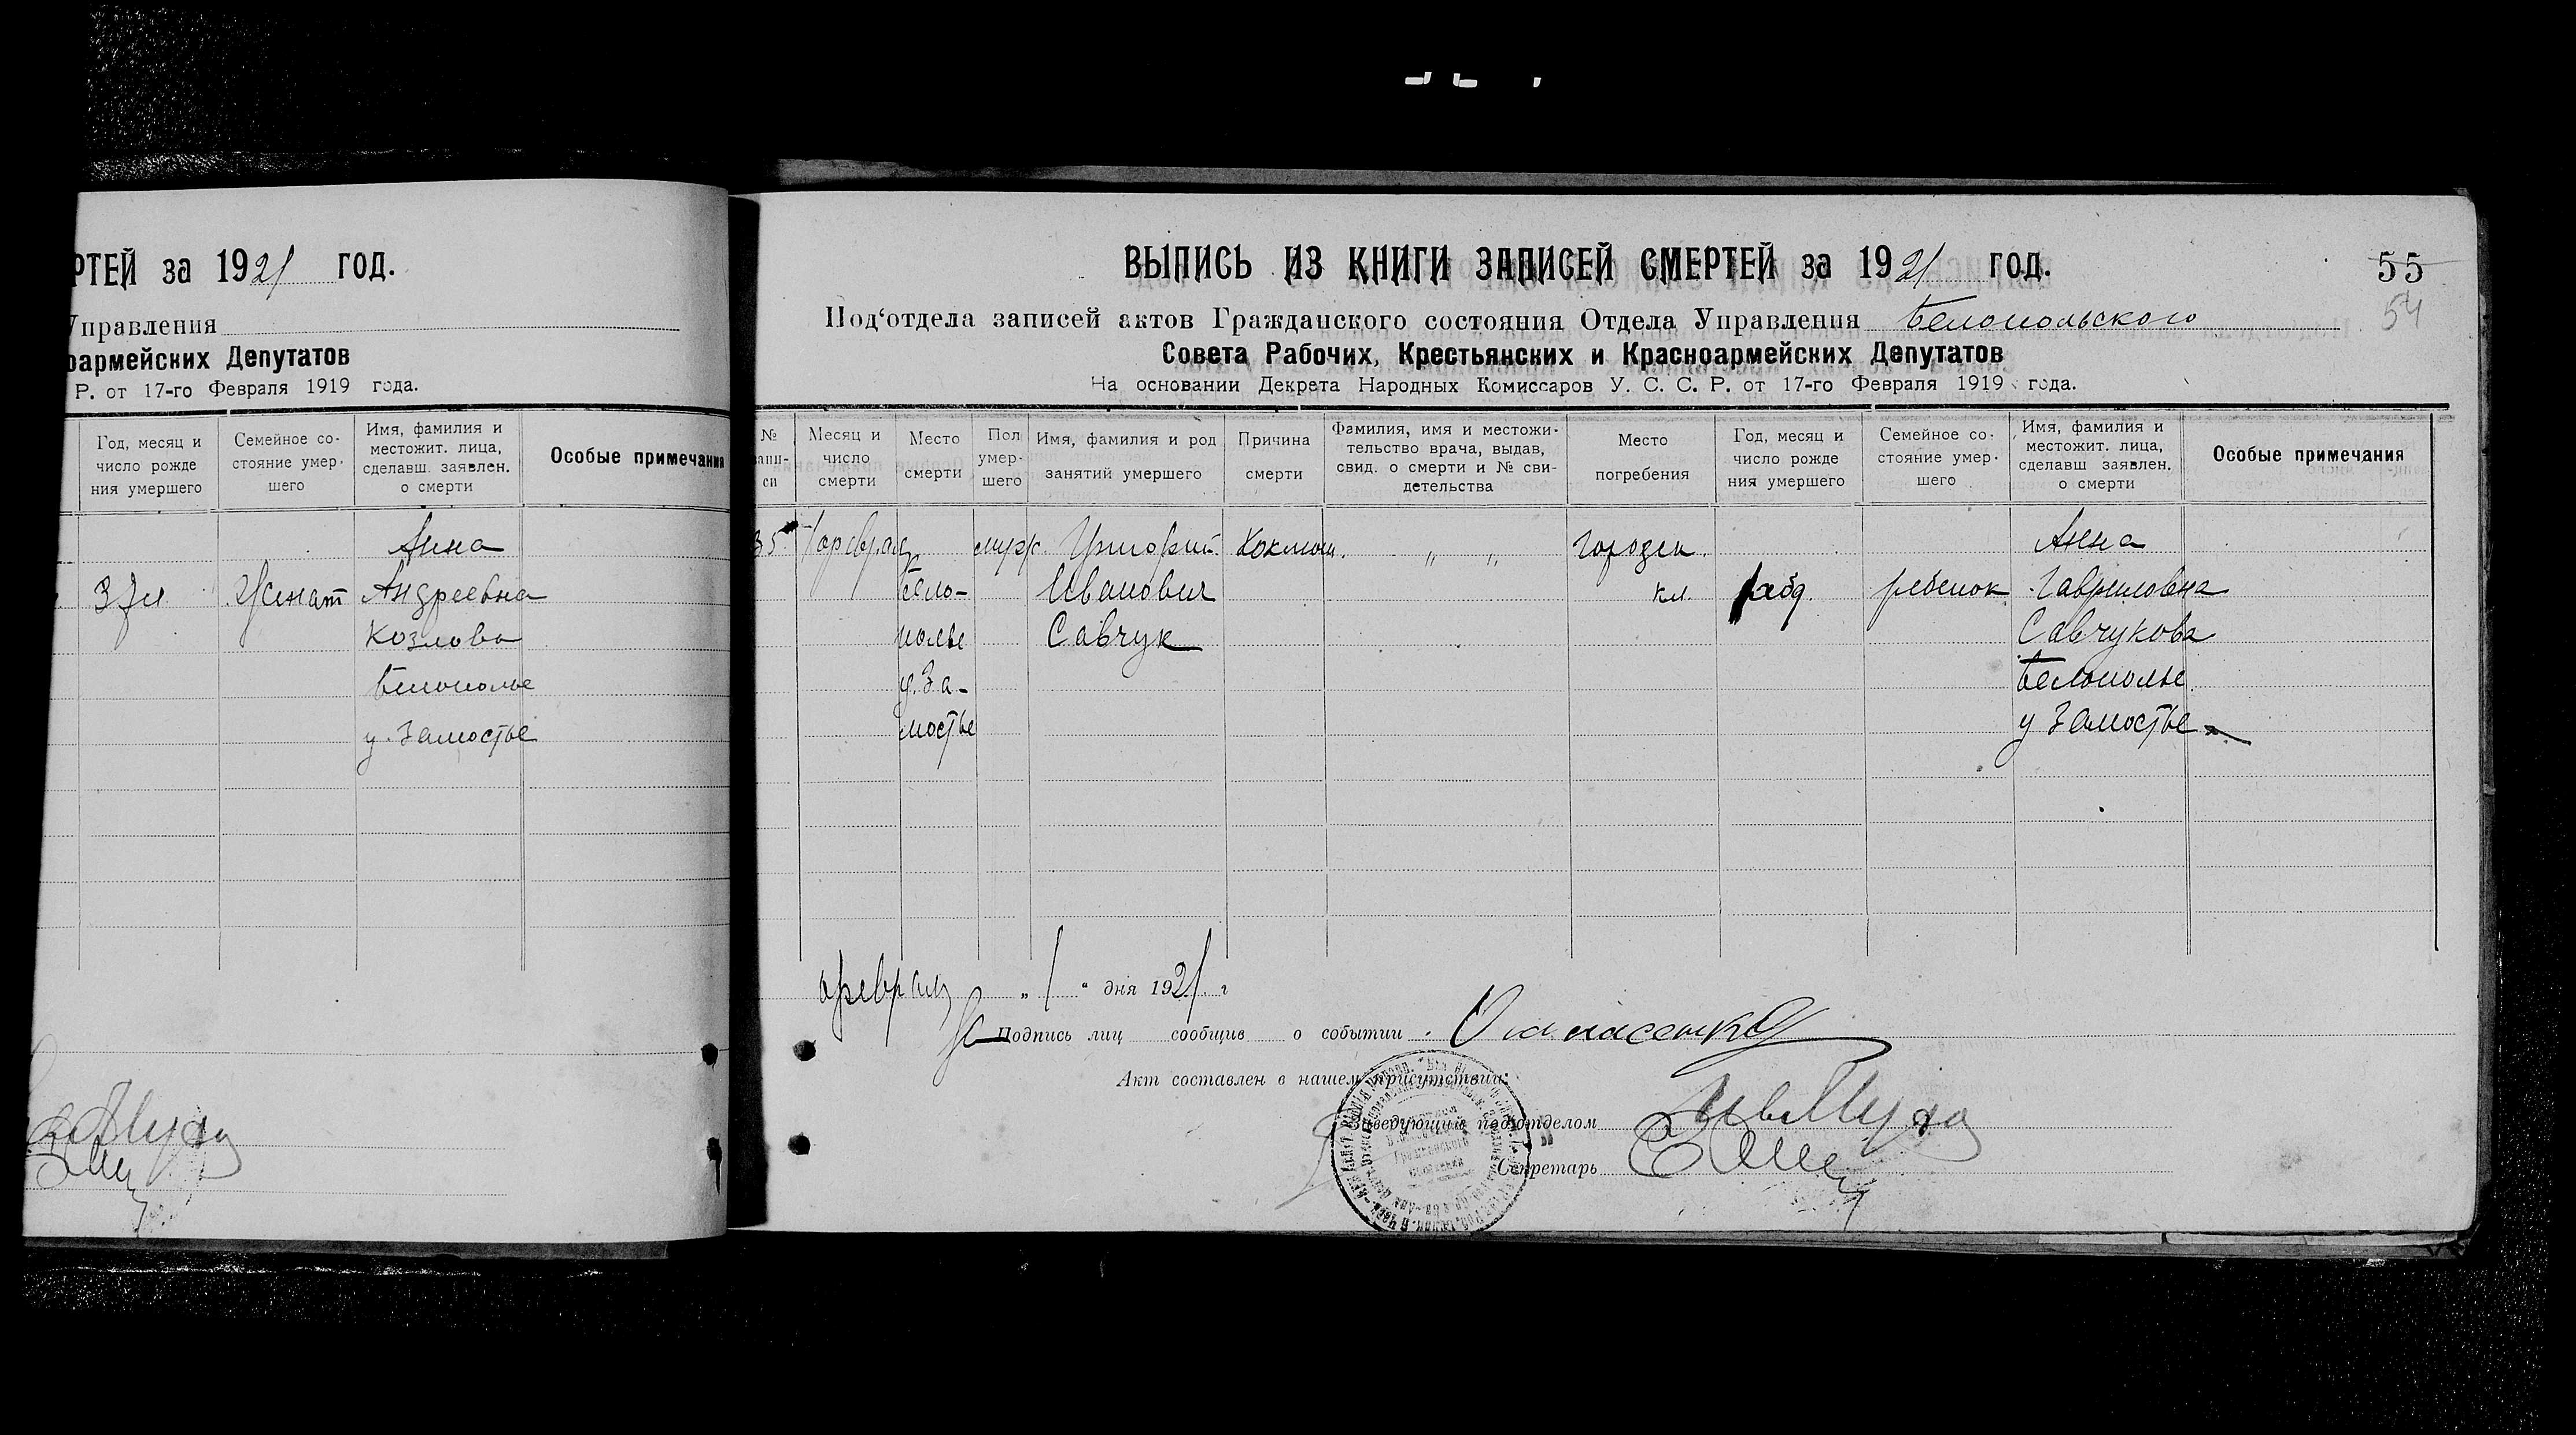 РТЕЙ за 1921 год.
Управления
оармейских Депутатов
Р. от 17-го Февраля 1919 года.
Год, месяц и число рожде ния умершего
Семейное со- стояние умер- шего
Имя, фамилия и местожит. лица, сделавш. заявлен. о смерти
Особые примечания
Анна
Женат Андреевна
Козлова
Белополье
у. Замостье
ВЫПИСЬ ИЗ КНИГИ ЗАПИСЕЙ СМЕРТЕЙ за 1921 год.
55
54
Под‘отдела записей актов Гражданского состояния Отдела Управления Белопольского
Совета Рабочих, Крестьянских и Красноармейских Депутатов
На основании Декрета Народных Комиссаров У. С. С. Р. от 17-го Февраля 1919 года.
№ запи- си
Месяц и число смерти
Место смерти
Пол умер- шего
Имя, фамилия и род занятий умершего
Причина смерти
Фамилия, имя и местожи- тельство врача, выдав, свид. о смерти и № сви- детельства
Место погребения
Год, месяц и число рожде ния умершего
Семейное со- стояние умер- шего
Имя, фамилия и местожит. лица, сделавш заявлен. о смерти
Особые примечания
35 1 февраля муж. Григорий Коклюш. „ „ городск. Анна
Бело- Иванович кл. ребенок Гавриловна
полье Савчук Савчукова
у. За- Белополье
мостье у Замостье
февраля „1“ дня 1921 г
Подпись лиц сообщив о событии
Акт составлен в нашем присутствии:
Заведующий под‘отделом
Секретарь